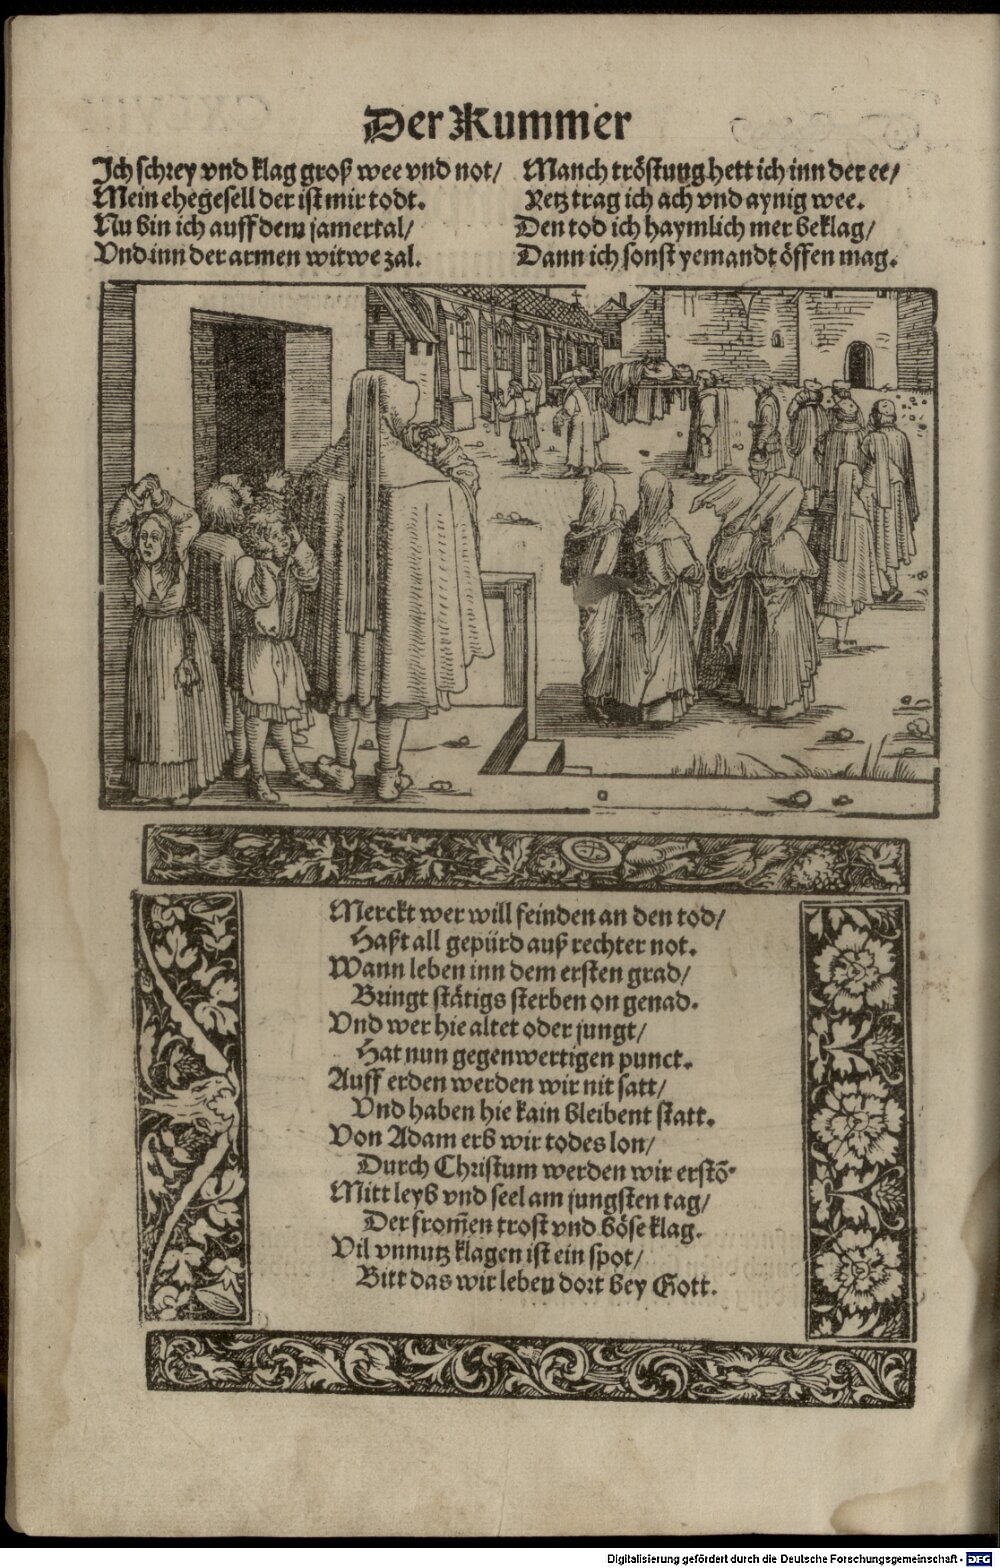 Der Kummer
Ich schrey vnd klag groß wee vnd not/
Mein ehegesell der ist mir todt.
Nu bin ich auff dem jamertal/
Vnd inn der armen witwe zal.
Manch tröstung hett ich inn der ee/
Yetz trag ich ach vnd aynig wee.
Den tod ich haymlich mer beklag/
Dann ich sonst yemandt öffen mag.
Merckt wer will feinden an den tod/
Haßt all gepürd auß rechter not.
Wann leben inn dem ersten grad/
Bringt stätigs sterben on genad.
Vnd wer hie altet oder jungt/
Hat nun gegenwertigen punct.
Auff erden werden wir nit satt/
Vnd haben hie kain bleibent statt.
Von Adam erb wir todes lon/
Durch Christum werden wir erstō.
Mitt leyb vnd seel am jungsten tag/
Der from̄en trost vnd böse klag.
Vil vnnutz klagen ist ein spot/
Bitt das wir leben dort bey Gott.
Digitalisierung gefördert durch die Deutsche Forschungsgemeinschaft - DFG